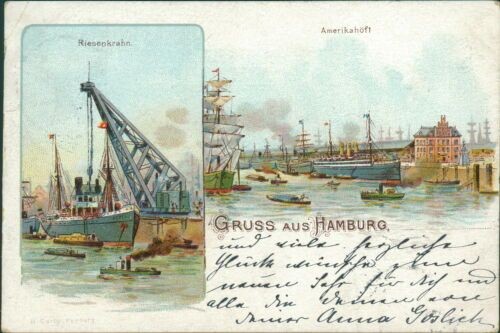 Riesenkrahn.
Amerikahöft
GRUSS AUS HAMBURG,
und viele herzliche
Glück wünsche zum
neuen Jahr für dich und
alle die deinen von
deiner Anna